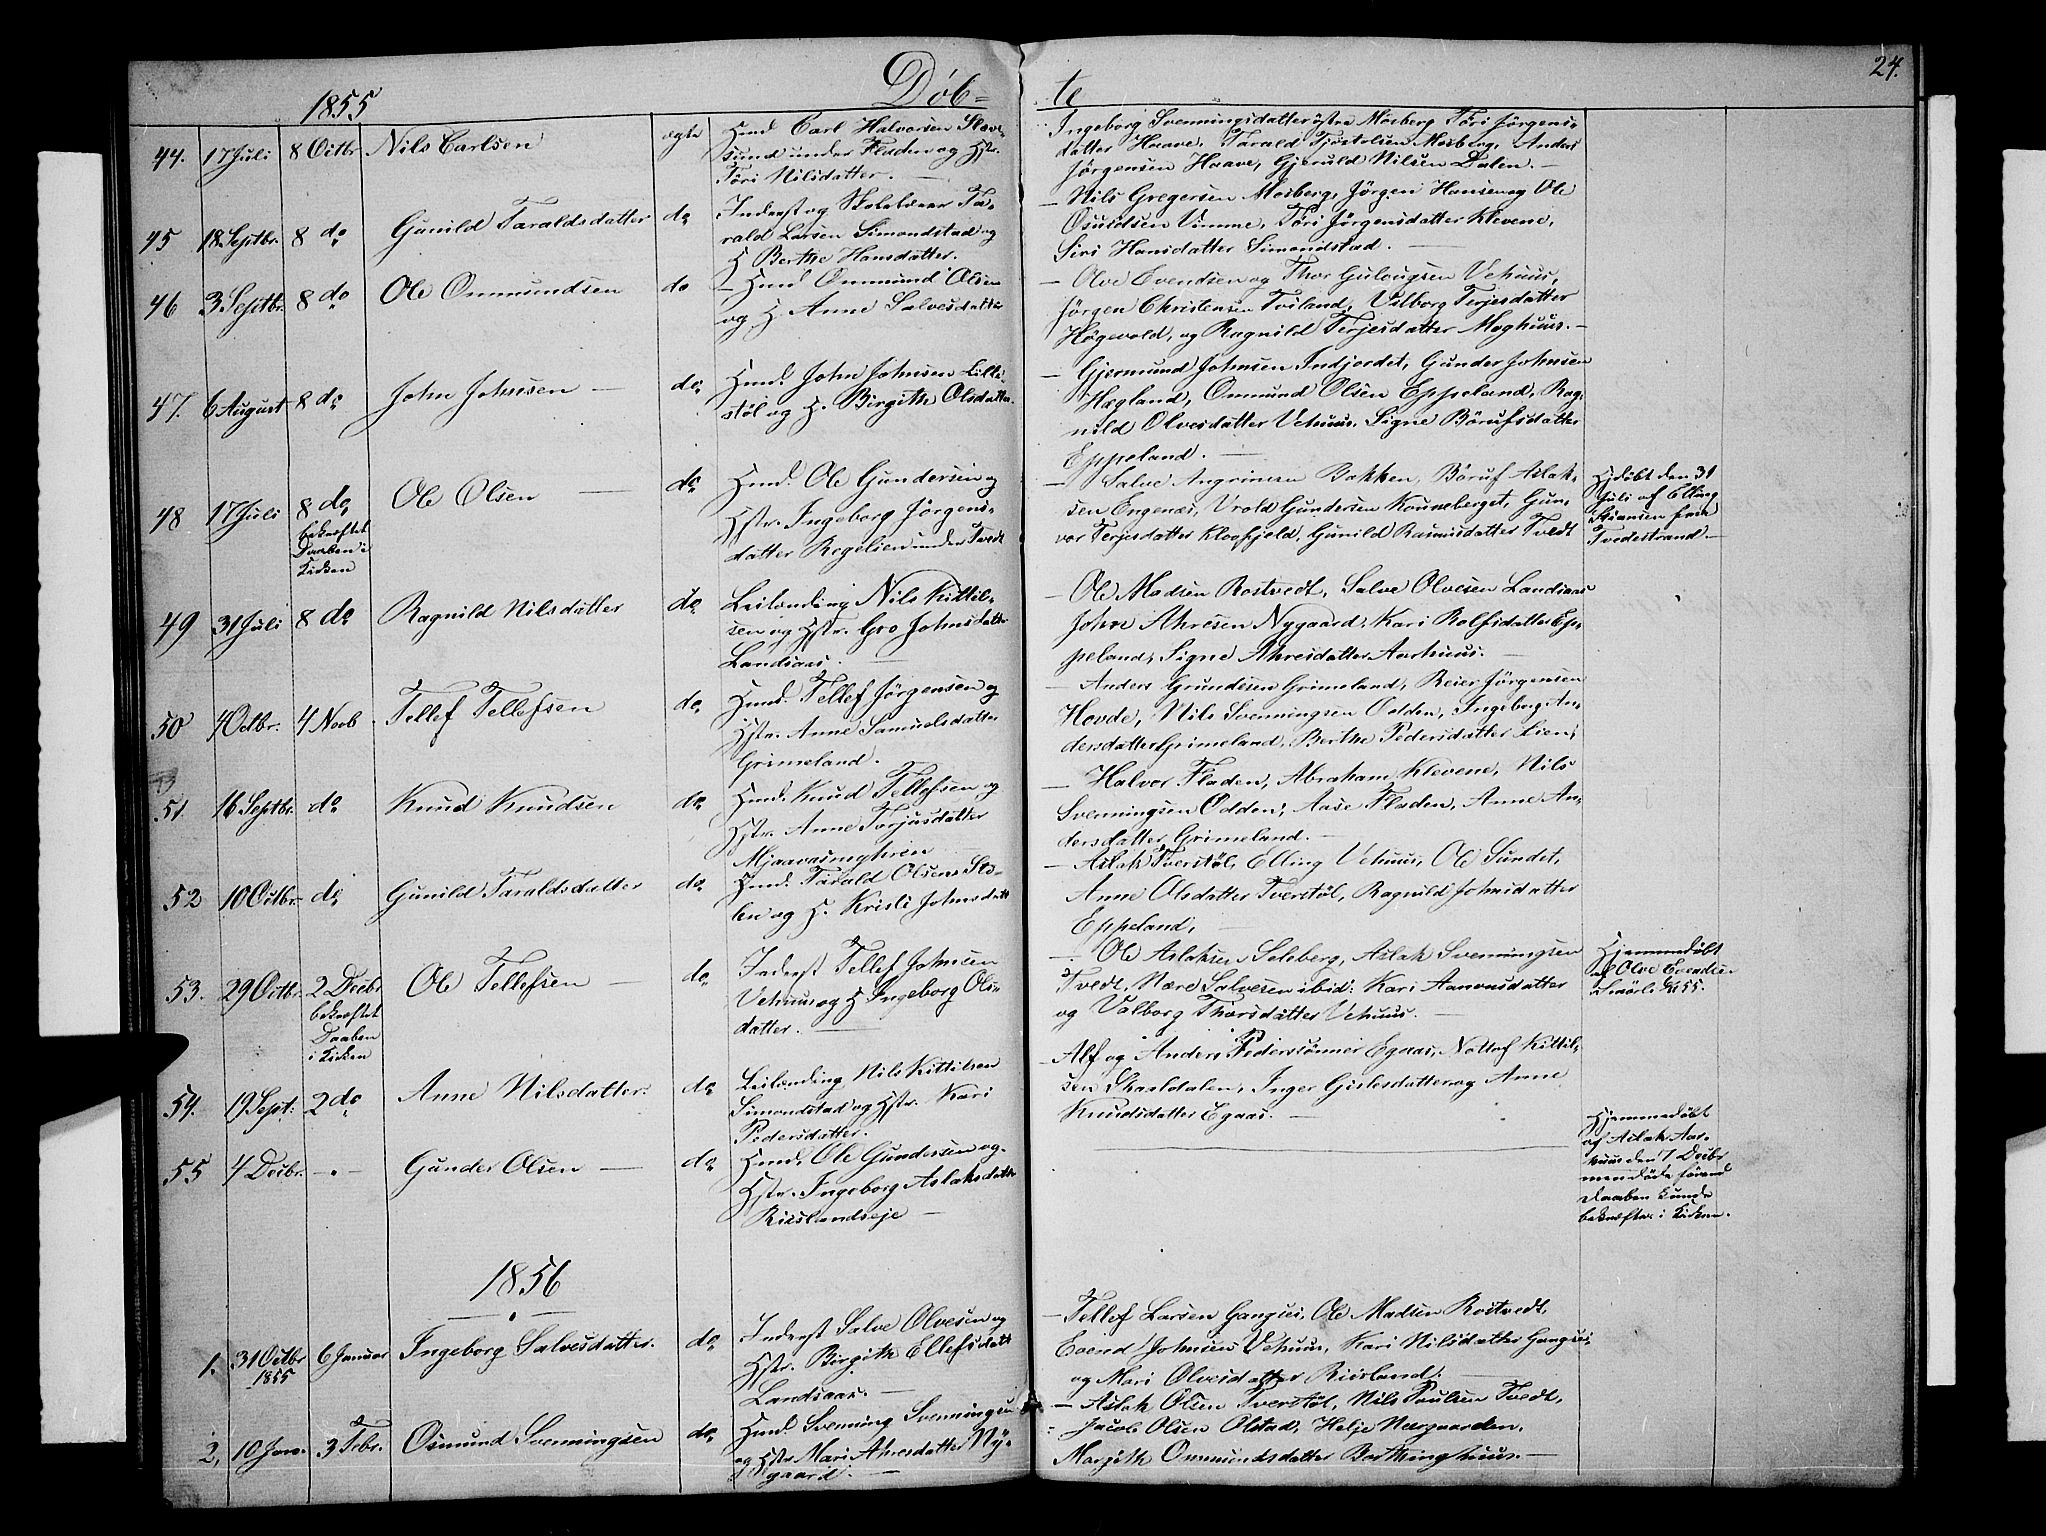 24.
Döb=
te
1855
44. 17 Juli 8 Octbr Nils Carlsen ægte
Hmd. Carl Halvorsen Stave-
sund under Fladen og Hstr.
Töri Nilsdatter. —
Ingeborg Svenningsdatter östre Mosberg, Töri Jörgens-
datter Haave, Tarald Tjöstolsen Mosberg, Anders
Jörgensen Haave, Gjeruld Nilsen Dalen. —
45 18 Septbr. 8 do Gunild Taraldsdatter do
Inderst og Skolelærer Ta-
rald Larsen Simonstad og
H Berthe Hansdatter.
— Nils Gregersen Mosberg, Jörgen Hansen og Ole
Osuldsen Vimme, Töri Jörgensdatter Klevene,
Siri Hansdatter Simonstad. —
46 3 Septbr. 8 do Ole Ommundsen do
— Hmd Ommund Olsen
og H. Anne Salvesdatter
— Olve Evendsen og Thor Gulougsen Vehuus,
Jörgen Christensen Tviland, Valborg Terjesdatter
Högevold, og Ragnild Terjesdatter Moghuus. —
47. 6 August 8 do John Johnsen — do
Hmd. John Johnsen Lille-
stöl og H. Birgith Olsdatter.
— Gjermund Johnsen Indjordet, Gunder Johnsen
Hægland, Ommund Olsen Eppeland, Rag-
nild Olvesdatter Vehuus, Signe Börufsdatter
Eppeland. —
48 17 Juli 8 do Ole Olsen — do
bekræftet
Daaben i
Kirken
Hmd. Ole Gundersen og
Hstr. Ingeborg Jörgens-
datter Bogelien under Tvedt
— Salve Angrimsen Bakken, Böruf Aslak-
sen Engenæs, Vrold Gundersen Kouneberget, Gun-
vor Terjesdatter Klospjeld, Gunild Rasmusdatter Tvedt
Hjdöbt den 31
Juli af Elling
Stiansen fra
Tvedestrand —
49 31 Juli 8 do Ragnild Nilsdatter do
Leilending Nils Kittil-
sen og Hstr. Gro Johnsdatter
Landsaas. —
— Ole Madsen Rostvedt, Salve Olvesen Landsaas
John Ahresen Nygaard, Kari Rolfsdatter Ep-
peland, Signe Ahresdatter Aashuus. —
50 4 Octbr. 4 Novb. Tellef Tellefsen do
Hmd. Tellef Jörgensen og
Hstr. Anne Samuelsdatter
Grimeland.
— Anders Grundesen Grimeland, Reier Jörgensen
Hovde, Nils Svenningsen Odden, Ingeborg An-
dersdatter Grimeland, Berthe Pedersdatter Lien,
51. 16 Septbr. do Knud Knudsen do
Hmd. Knud Tellefsen og
Hstr. Anne Torjusdatter
Mjaavasmyhren
— Halvor Fladen, Abraham Klevene, Nils
Svenningsen Odden, Aase Fladen, Anne An-
dersdatter Grimeland. —
52 10 Octbr. do Gunild Taraldsdatter do
Hmd. Tarald Olsen Sto-
len og H. Kristi Johnsdatt
— Aslak Tverstöl, Elling Vehuus, Ole Sundet,
Anne Olsdatter Tverstöl, Ragnild Johnsdatter
Eppeland, —
53. 29 Octbr. 2 Decbr Ole Tellefsen — do
bekræftet
Daaben
i Kirken
Inderst Tellef Johnsen
Vehuus og H Ingeborg Ols-
datter. —
— Ole Aslaksen Selsberg, Aslak Svenningsen
Tvedt, Nære Salvesen ibid: Kari Aanonsdatter
og Valborg Thorsdatter Vehuus. —
Hjemmedöbt
af Olve Evendsen
55.
54. 19 Sept: 2 do Anne Nilsdatter. do
Leilending Nils Kittilsen
Simonstad og Hstr. Kari
Pedersdatter.
Alf og Anders Pedersönner Egaas, Nottof Kittil-
sen Skaaldalen, Inger Gislesdatter og Anne
Knudsdatter Egaas. —
55 4 Decbr. -.- Gunder Olsen — do
Hmd. Ole Gundersen og
Hstr. Ingeborg Aslaksdatter
Riislandseje —
Hjemmedöbt
af Aslak Aas-
huus den 7 Decbr
men döde förend
Daaben kunde
bekræftes i Kirken.
1856
1. 31 Octbr 6 Januar Ingeborg Salvesdatter. do
1855
Inderst Salve Olvesen og
Hstr. Birgith Ellefsdatt
Landsaas. —
— Tellef Larsen Gangsei, Ole Madsen Rostvedt,
Evend Johnsen Vehuus, Kari Nilsdatter Gangsei,
og Mari Olvesdatter Riisland.
2, 10 Jan. 3 Febr. Osmund Svenningsen do
Hmd. Svenning Svenningsen
og Hstr Mari Ahresdatter Ny-
gaard. —
— Aslak Olsen Tverstöl, Nils Poulsen Tvedt,
Jacob Olsen Olstad, Helje Nergaarden,
Margith Ommundsdatter Borthinghuus. —